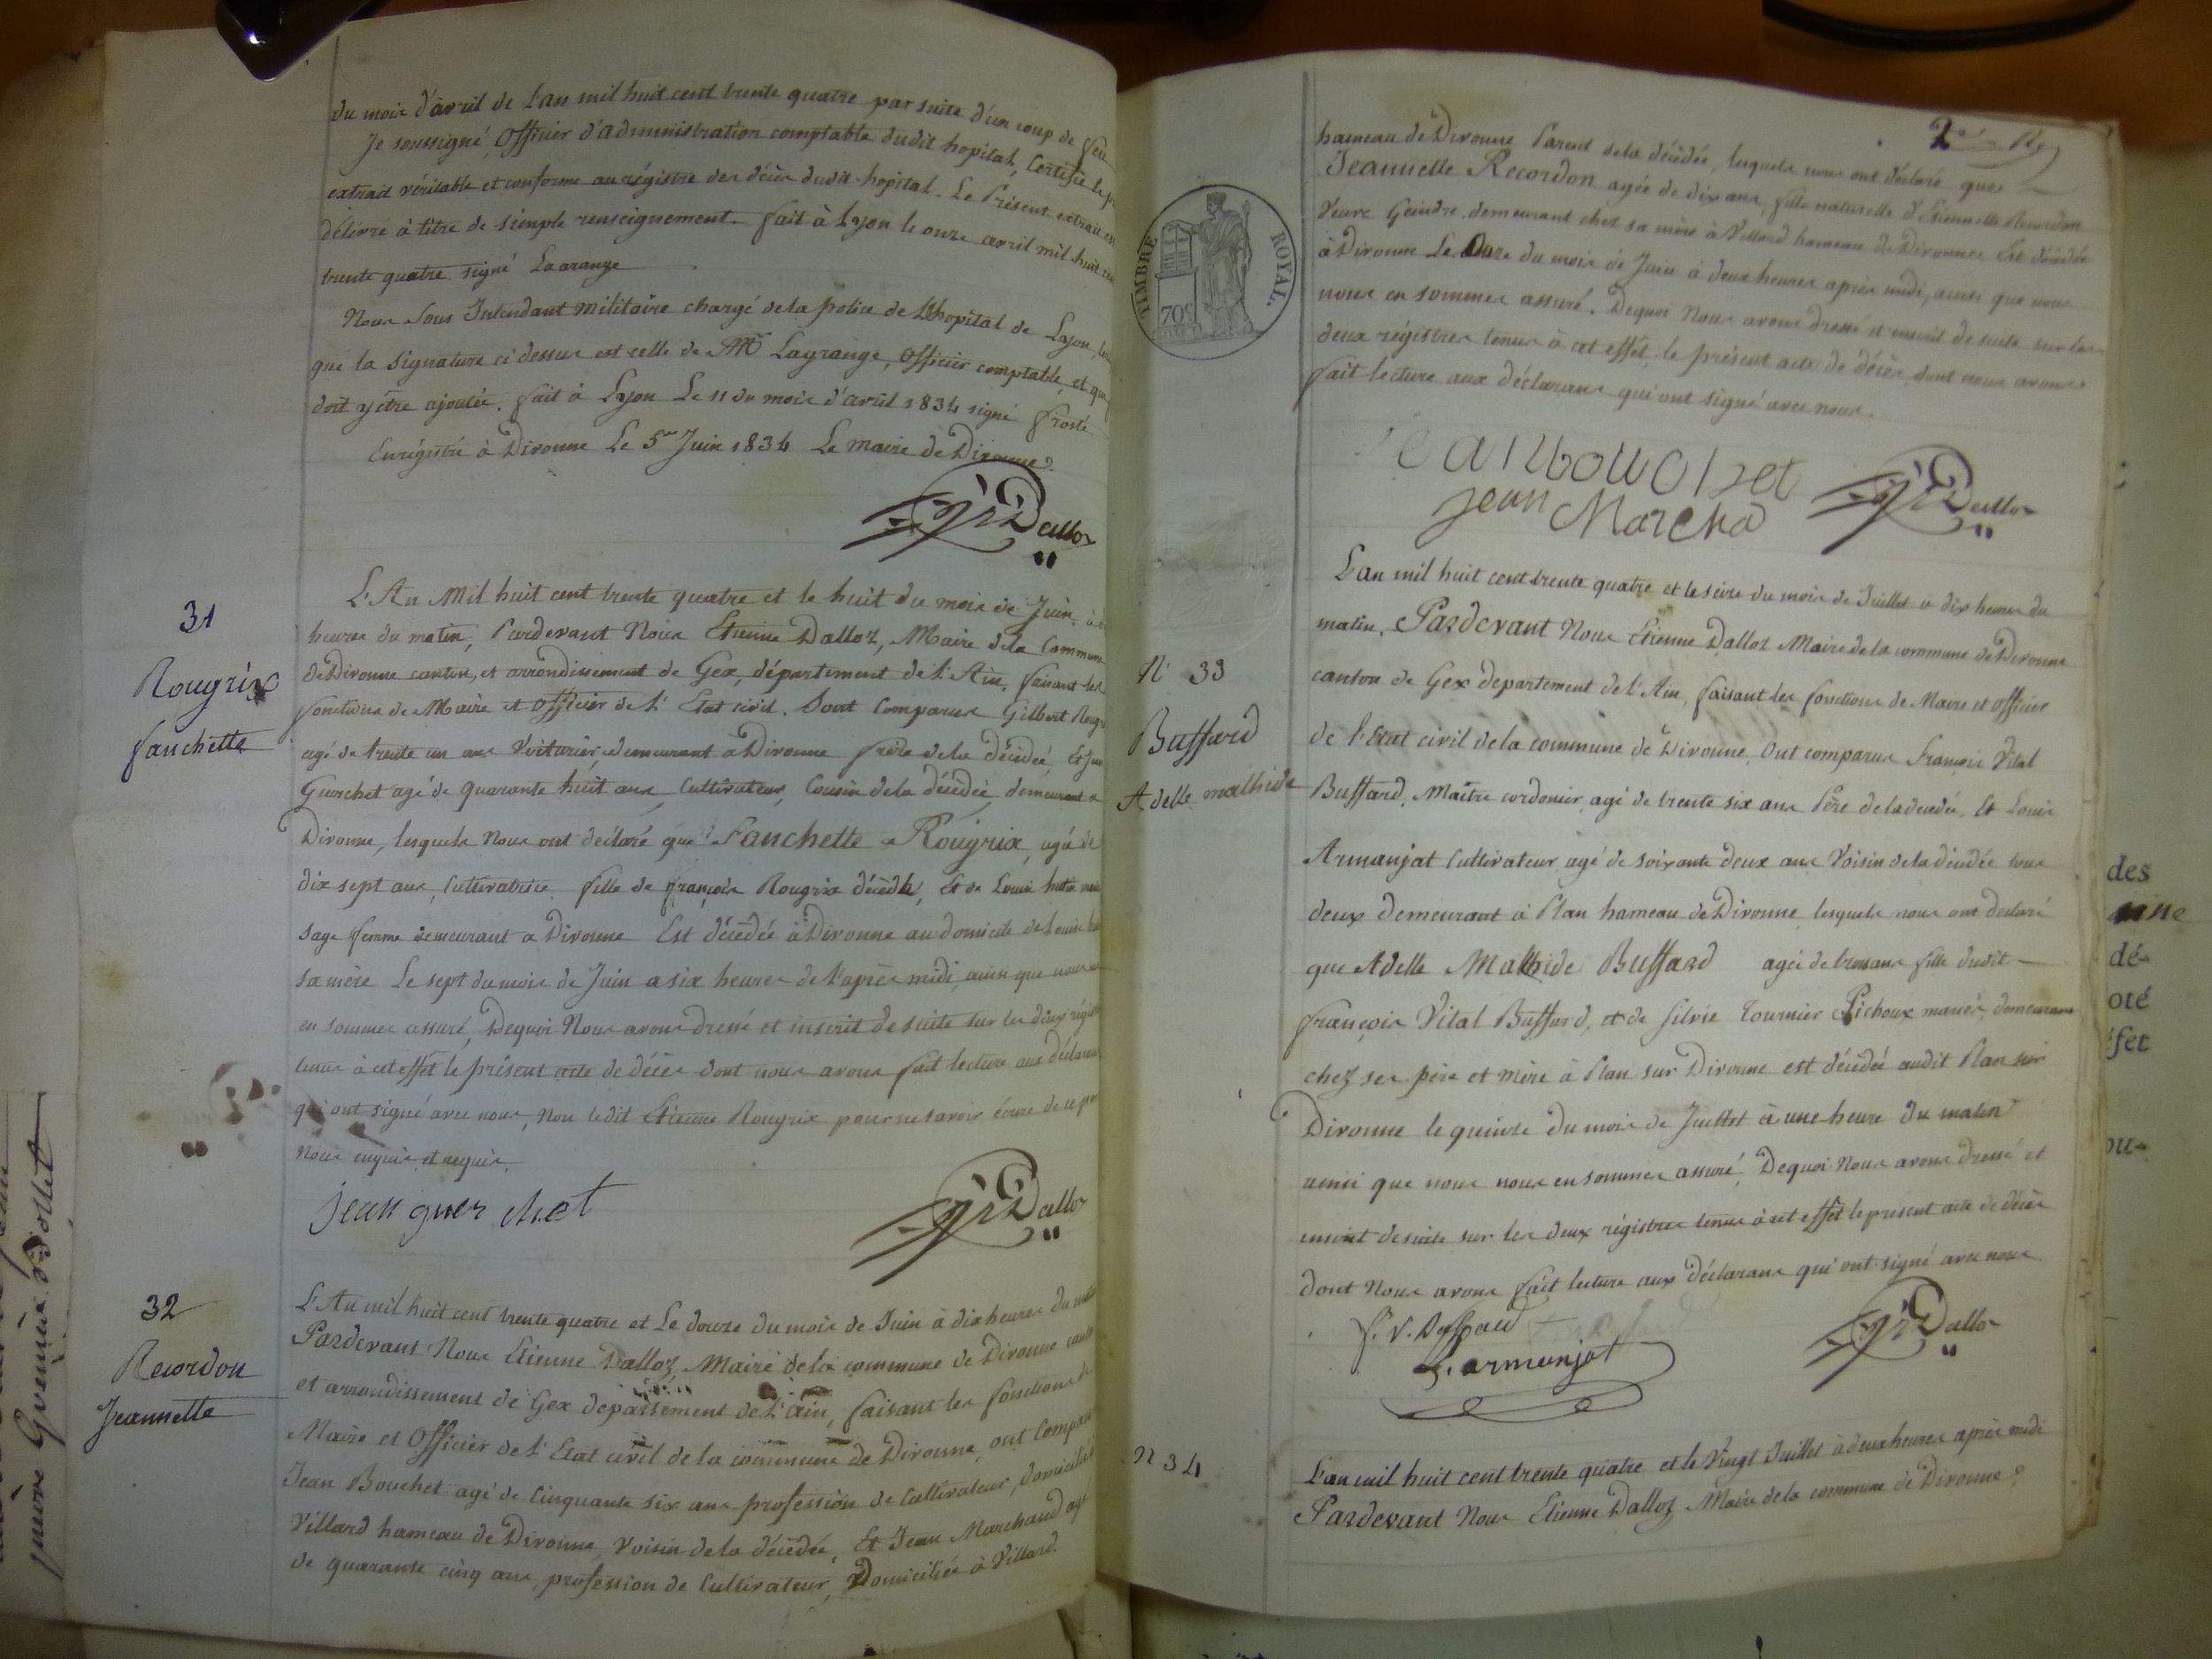 du mois d'avril de l'an mil huit cent trente quatre par suite d'un coup de feu
Je soussigné, Officier d'administration comptable dudit hopital, Certifie le
extrait véritable et conforme au régistre des décès dudit hopital. Le Présent extrait
délivré à titre de simple renseignement. fait à Lyon le onze avril mil huit
trente quatre signé Lagrange
Nous Sous Intendant militaire chargé de la police de L'hopital de Lyon
que la signature ci dessus est celle de Mr Lagrange, Officier comptable, et que
doit y être ajoutée. fait à Lyon Le 11 du mois d'avril 1834 signé
Enrégistré à Divonne Le 5 Juin 1834 Le maire de Divonne
Dalloz
31
Rougrix
fanchette
L'An Mil huit cent trente quatre et le huit du mois de Juin, à
heures du matin, Pardevant Nous Etienne Dalloz, Maire de la Commune
de Divonne canton, et arrondissement de Gex, département de l'Ain, faisant les
fonctions de Maire et Officier de l'Etat civil. Sont Comparus Gilbert
agé de trente un ans Voiturier, demeurant à Divonne frère de la Décédée, Et
Guerchet agé de quarante huit ans, Cultivateur, Cousin de la décédée, demeurant à
Divonne, lesquels Nous ont déclaré que Fanchette Rougrix, agée de
dix sept ans, Cultivatrice fille de françois Rougrix décédé, Et de Louise
sage femme demeurant a Divonne Est décédée à Divonne au domicile de Louise
sa mère Le sept du mois de Juin a six heures de l'après midi, ainsi que nous nous
en sommes assuré, Dequoi Nous avons dressé et inscrit desuite sur les deux régistres
tenus à cet effet le présent acte de décès dont nous avons fait lecture aux déclarans
qui ont signé avec nous, Non ledit Etienne Rougrix pour ne savoir écrire de ce par
Nous enquis et requis.
jean guerchet
Dalloz
32
Recordon
Jeannette
L'An mil huit cent trente quatre et Le douze du mois de Juin à dix heures du
Pardevant Nous Etienne Dalloz, Maire de la commune de Divonne
et arrondissement de Gex département de l'ain, faisant les fonctions de
Maire et Officier de l'Etat civil de la commune de Divonne, ont Comparus
Jean Bouchet agé de Cinquante six ans profession de Cultivateur, domicilié
Villard hameau de Divonne, Voisin de la décédée, Et Jean Marchand agé
de quarante cinq ans, profession de Cultivateur, Domiciliée à Villard.
hameau de Divonne Parent de la décédée, lesquels nous ont déclaré que
Jeannette Recordon agée de dix ans, fille naturelle d'Etiennette Recordon
Veuve Geindre, demeurant chez sa mère à Villard hameau de Divonne Est décédée
à Divonne Le Onze du mois de Juin à deux heures après midi, ainsi que nous
nous en sommes assuré. Dequoi Nous avons dressé et inscrit de suite sur les
deux régistres tenus à cet effet, le présent acte de décès, dont nous avons
fait lecture aux déclarans qui ont signé avec nous.
TIMBRE ROYAL.
70c
jean Marcha
Dalloz
N° 33
Buffard
Adelle mathide
L'an mil huit cent trente quatre et le seize du mois de Juillet à dix heures du
matin. Pardevant Nous Etienne Dalloz Maire de la commune de Divonne
canton de Gex departement de l'Ain, faisant les fonctions de Maire et officier
de l'Etat civil de la commune de Divonne, Ont comparus François Vital
Buffard, Maître cordonier, agé de trente six ans Père de la décédée, Et Louis
Armanjat Cultivateur, agé de soixante deux ans Voisin de la décédée tous
deux demeurant à Plan hameau de Divonne, lesquels nous ont déclaré
que Adelle Mathide Buffard agée de trois ans fille dudit
françois Vital Buffard, et de Silvie Tournier Pichoux mariés, demeurans
chez ses père et mère à Plan sur Divonne est décédée audit Plan sur
Divonne le quinze du mois de Juillet à une heure du matin
ainsi que nous nous en sommes assuré, Dequoi Nous avons dressé et
inscrit desuite sur les deux régistres tenus à cet effet le present acte de décès
dont Nous avons fait lecture aux déclarans qui ont signé avec nous
f. V. Buffard
L. armanjat
Dalloz
N 34
L'an mil huit cent trente quatre et le Vingt Juillet à deux heures après midi
Pardevant Nous Etienne Dalloz Maire de la commune de Divonne
des
dé-
oté
fet
ou-